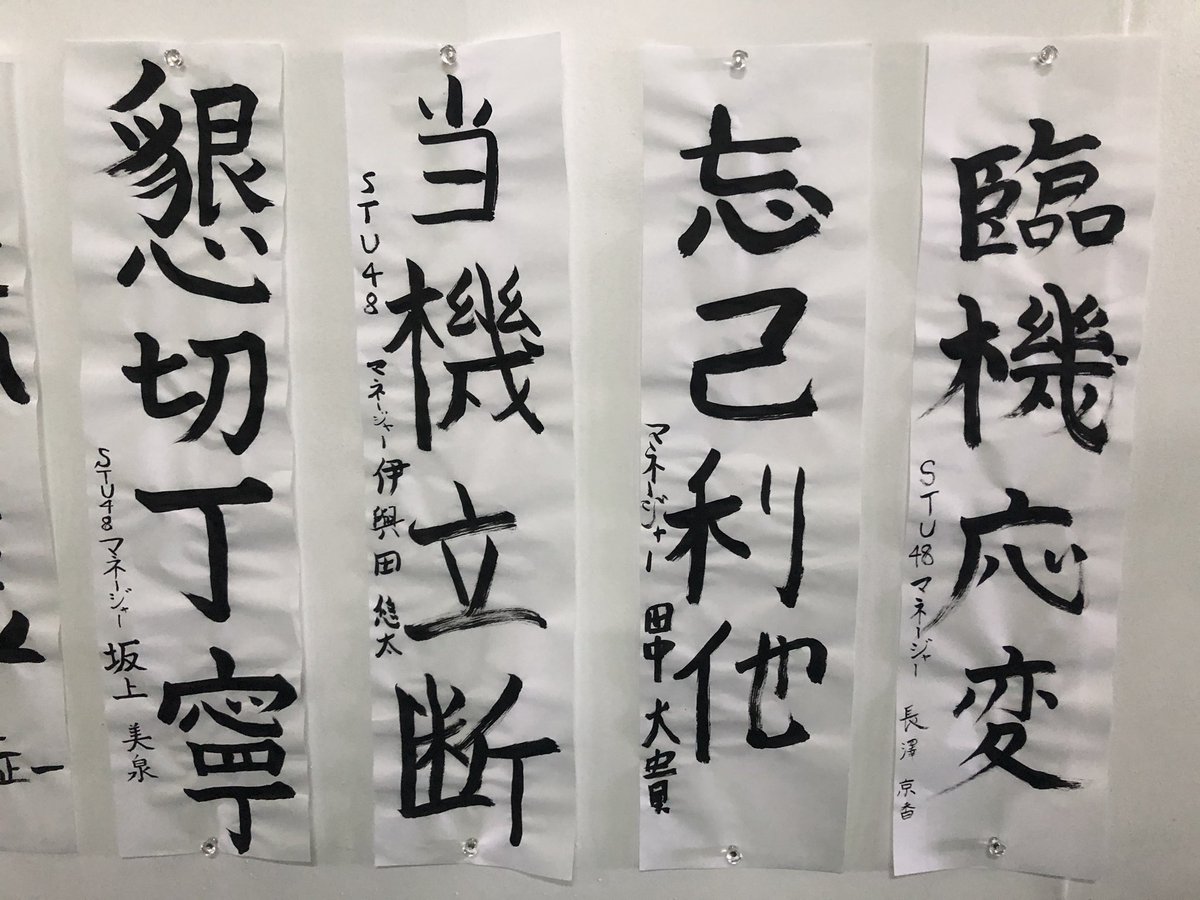 臨機応変
STU48 マネージャー 長澤 京香
忘己利他
マネージャー 田中 大貴
当機立断
STU48 マネージャー 伊與田 悠太
懇切丁寧
STU48 マネージャー 坂上 美泉
正一